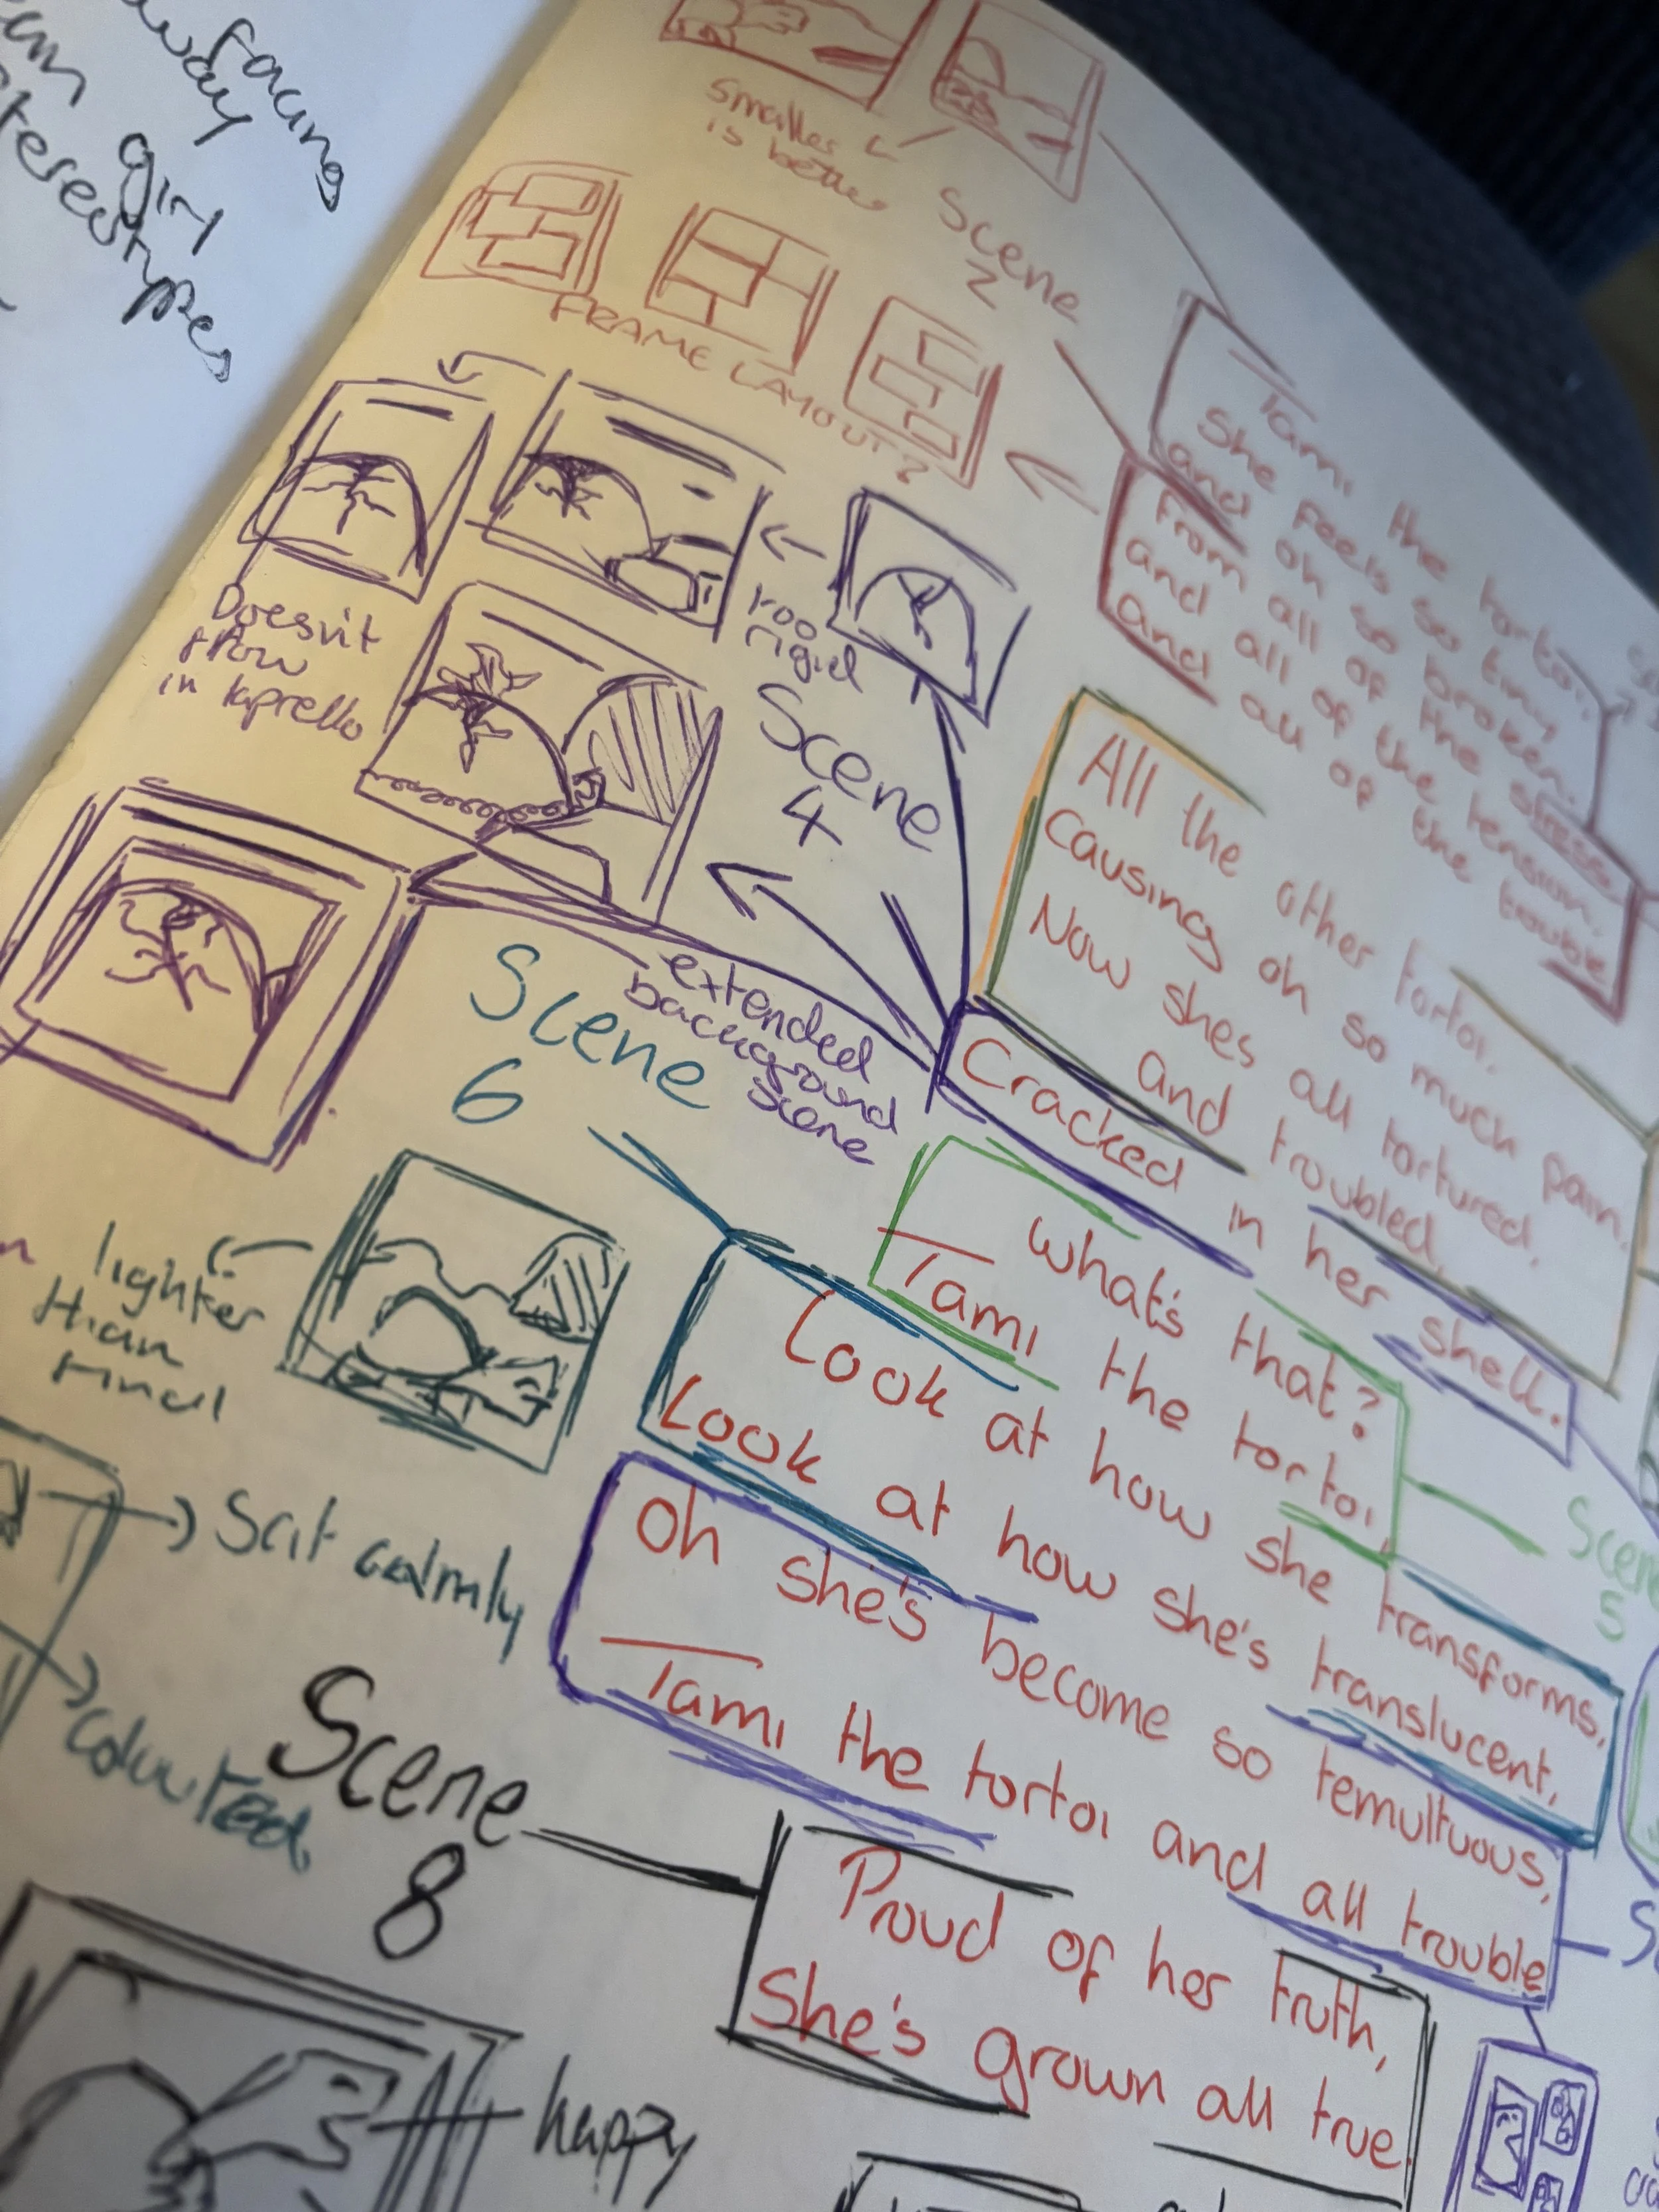 facing
away
gin
stereotypes
smaller
is better
Scene
2
FRAME LAYOUT?
Tami the tortoi,
She feels so tiny
and oh so broken.
From all of the stress,
and all of the tension,
and all of the trouble
Doesn't
flow
in leprello
too
rigid
Scene
4
extended
background
scene
All the other tortoi.
Causing oh so much pain.
Now shes all tortured,
and troubled,
Cracked in her shell.
Scene
6
lighter
than
final
What's that?
Tami the tortoi,
Scene
5
Look at how she transforms,
Look at how she's translucent,
Oh she's become so temultuous,
Tami the tortoi and all trouble
Sat calmly
coloured
Scene
8
Proud of her truth,
She's grown all true.
happy